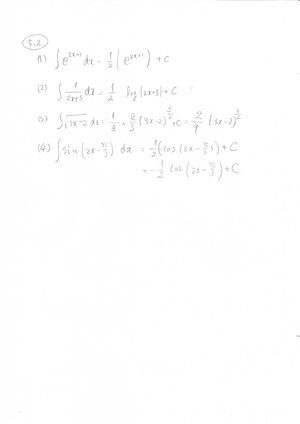 5.2
(1) ∫ e^{2x+1} dx = 1/2 (e^{2x+1}) + C
(2) ∫ 1/(2x+5) dx = 1/2 log |2x+5| + C
(3) ∫ √(3x-2) dx = 1/3 × 2/3 (3x-2)^{3/2} + C = 2/9 (3x-2)^{3/2}
(4) ∫ sin (2x - π/3) dx = 1/2 (cos (2x - π/3) + C
= - 1/2 cos (2x - π/3) + C